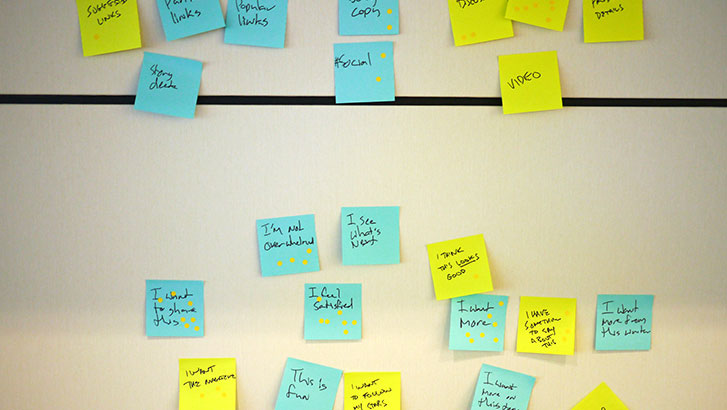 SUGGESTED
LINKS
links
Popular
links
Story
copy
DETAILS
Story
deck
#social
VIDEO
I'm not
overwhelmed
I see
what's
Next
I THINK
THIS LOOKS
GOOD
I want
to share
this
I feel
Satisfied
I want
More
I HAVE
SOMETHING
TO SAY
ABOUT
THIS
I want
more from
this writer
I WANT
THIS
This is
fun
I WANT
TO FOLLOW
MY STARS
I want
more on